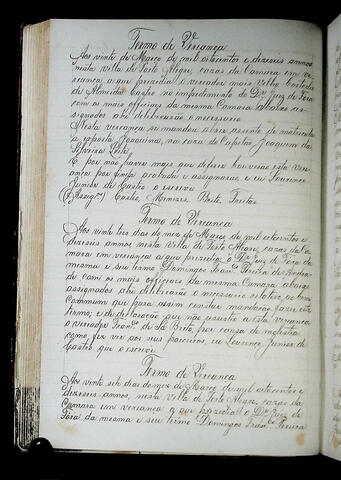 Termo de Vereança
Aos vinte de Março de mil oitocentos e dezeseis annos
nesta Villa de Porto Alegre, cazas da Camara em ve-
reança a que prezidio o vereador mais velho Custodio
de Almeida Castro no impedimento do Dr. Juiz de Fora
com os mais officiaes da mesma Camara abaixo as-
signados ahi deliberarão o necessario
Nesta vereança se mandou abrir assento de matricula
a exposta Joaquina, na caza do Capitão Joaquim da
Silveira Leite,
E por não haver mais que deferir houverão esta vere-
ança por finda acabada e assignarão, e eu Lourenço
Junior de Castro o escrevi
(Assign.) Castro, Menezes Brito, Freitas
Termo de Vereança
Aos vinte tres dias do mez de Março de mil oitocentos e
dezeseis annos nesta Villa de Porto Alegre, cazas da Ca-
mara em vereança a que prezidio o Dr. Juiz de Fora da
mesma e seu termo Domingos Franco. Pereira de Andra-
de com os mais officiaes da mesma Camara abaixo
assignados ahi deliberarão o necessario relativo ao bem
Commum que para assim constar mandarão fazer este
termo; e de declaração que não assistio a esta vereança
o vereador Franco. de Sa Brito, por cauza de molestia
como fez ver por seus parceiros, eu Lourenço Junior de
Castro que o escrevi
Termo de Vereança
Aos vinte sete dias do mez de Março de mil oitocentos e
dezeseis annos, nesta Villa de Porto Alegre, cazas da
Camara em vereança a que prezidio o Dr. Juiz de
Fora da mesma e seu termo Domingos Franco. Pereira